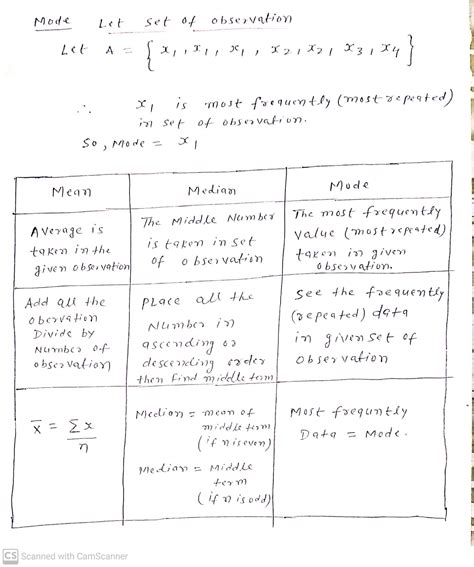 Mode Let set of observation
Let A = { x1, x1, x1, x2, x2, x3, x4 }
∴ x1 is most frequently (most repeated)
in set of observation.
So, Mode = x1
Mean
Median
Mode
Average is
taken in the
given observation
The Middle Number
is taken in set
of observation
The most frequently
value (most repeated)
taken in given
observation.
Add all the
obervation
Divide by
Number of
observation
Place all the
Number in
ascending or
descending order
then find middle term
See the frequently
(repeated) data
in given set of
observation
x̅ = Σx
n
Median = mean of
middle term
(if n is even)
Median = Middle
term
(if n is odd)
Most frequntly
Data = Mode.
CS Scanned with CamScanner